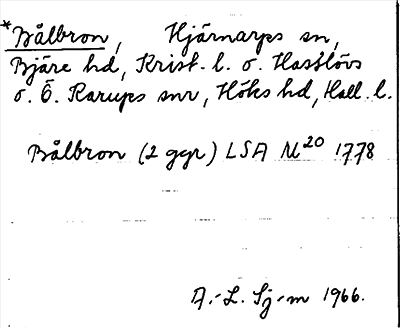 *Bålbron, Hjärnarps sn,
Bjäre hd, Krist. l. o. Hasslövs
o. Ö. Karups snr, Höks hd, Hall. l.
Bålbron (2 ggr) LSA M20 1778
A.-L. Sj-m 1966.